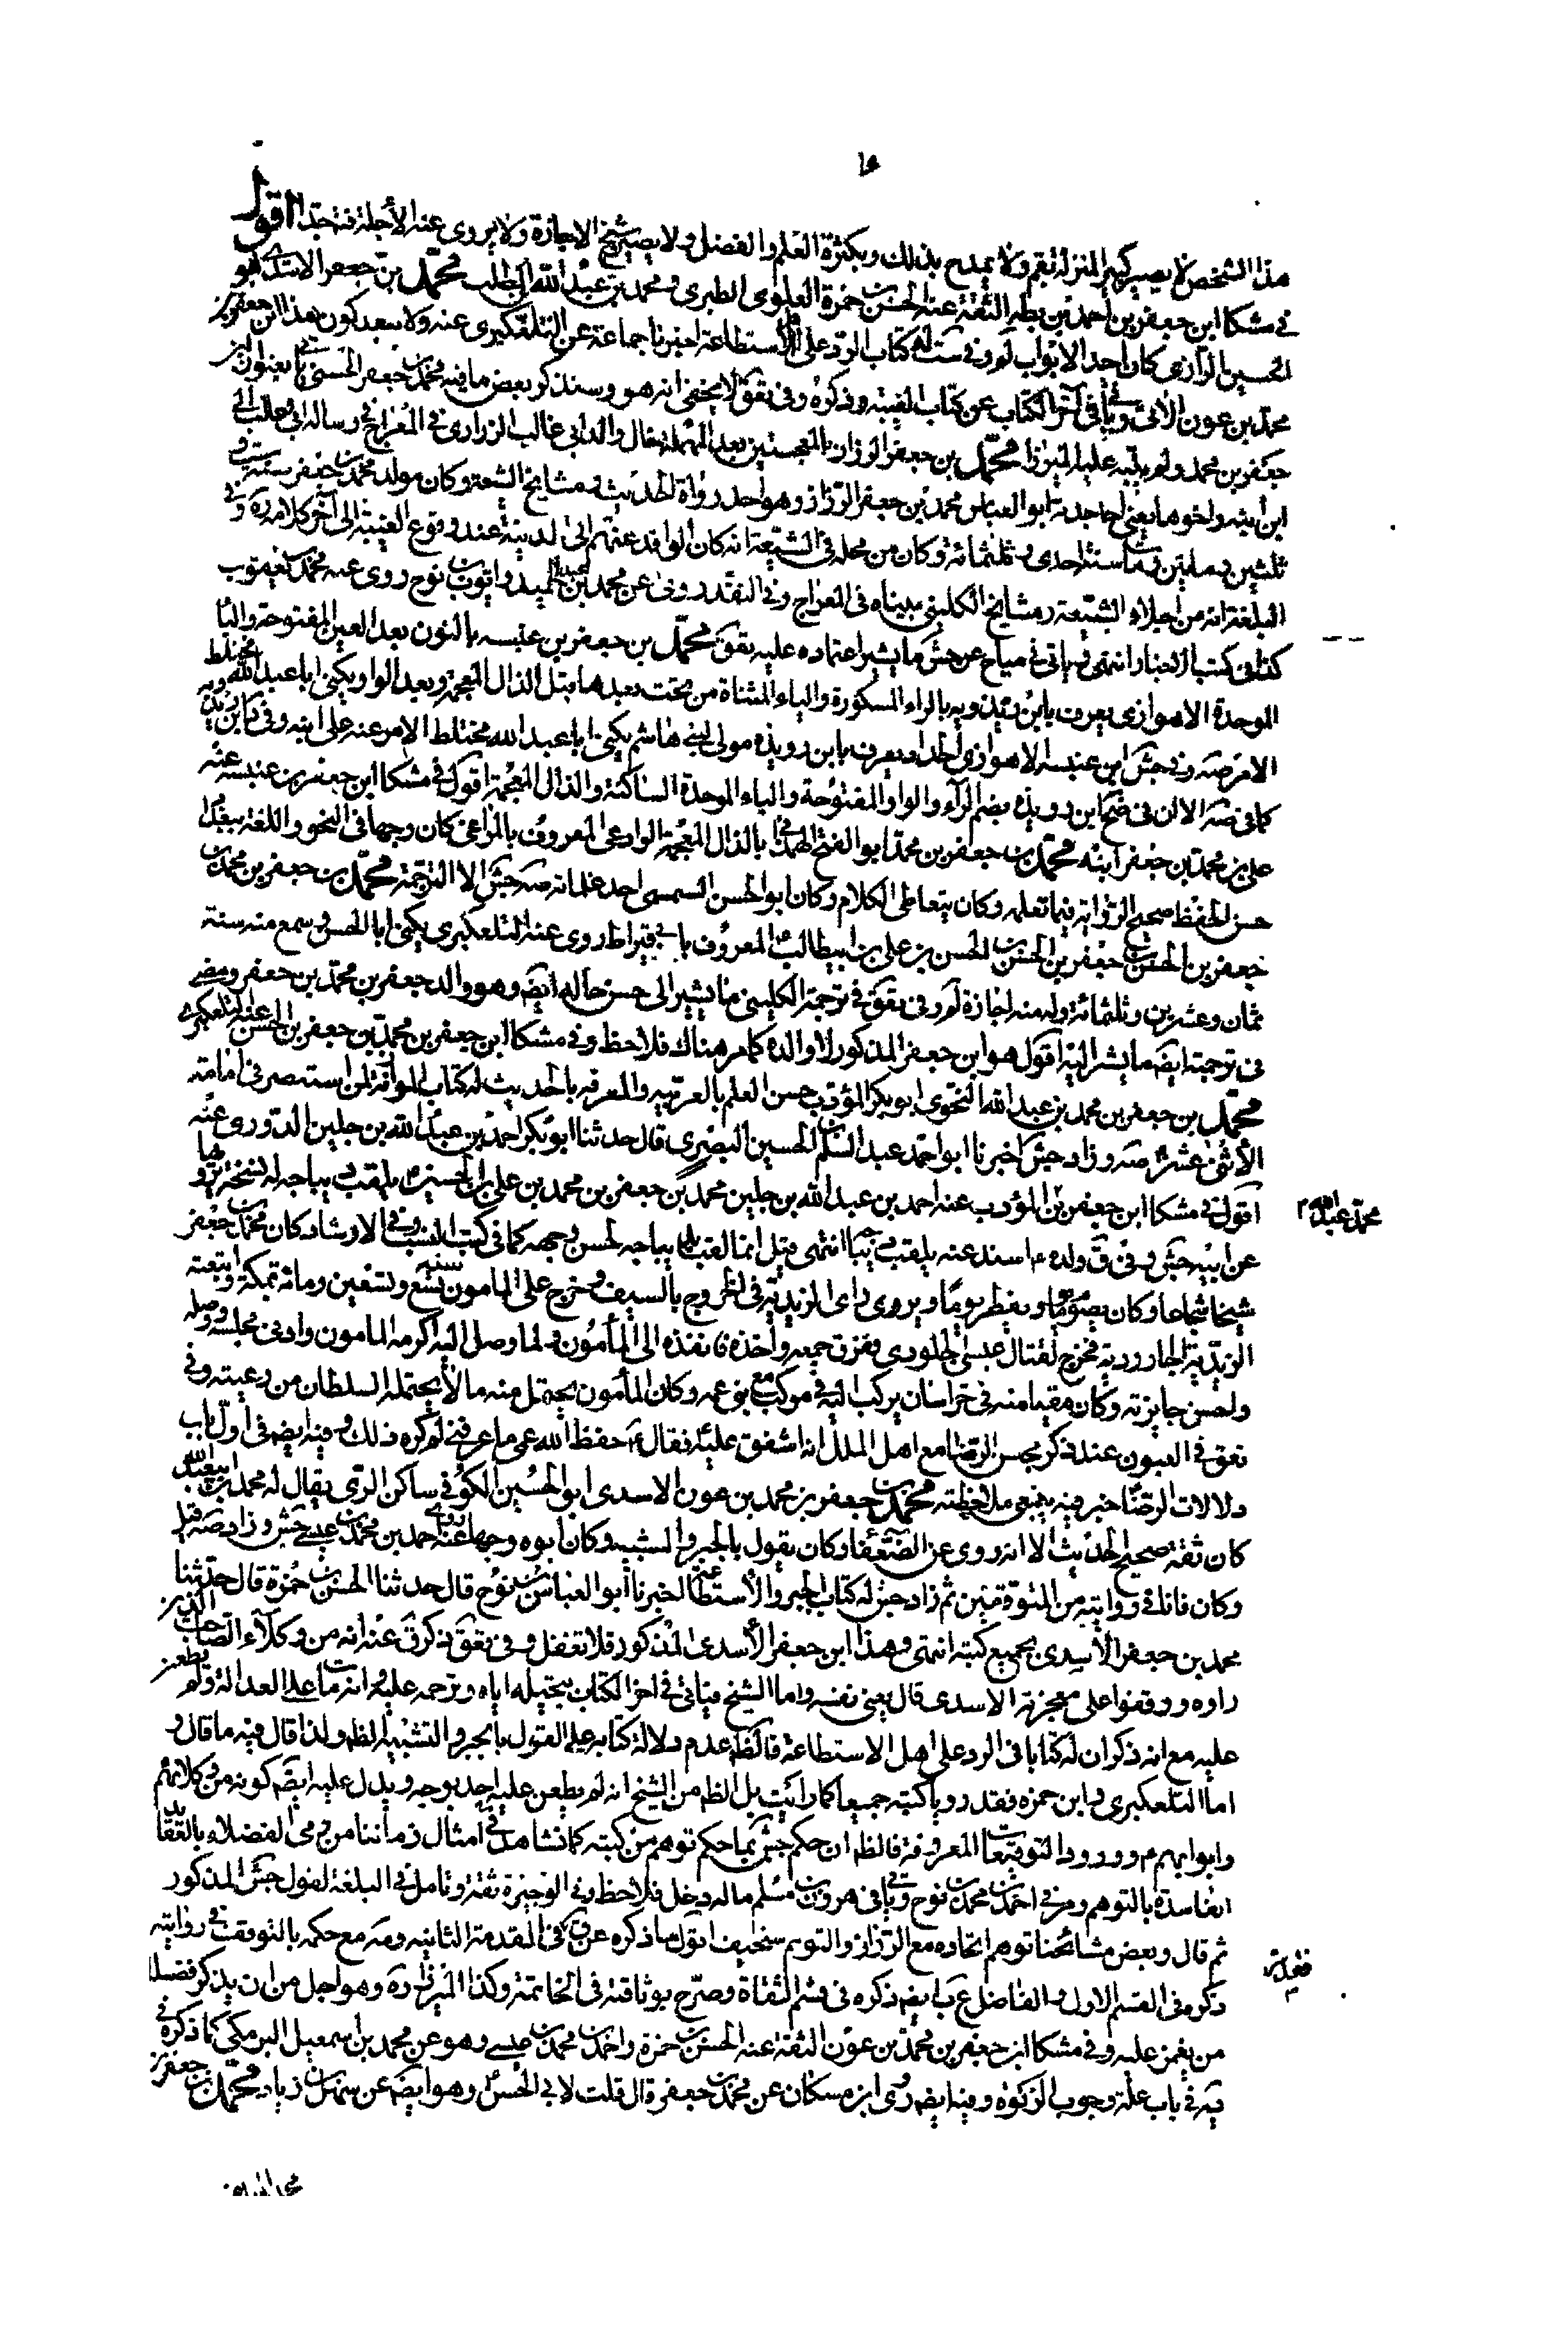 هذا الشخص لا يصير كبير المنزلة بقم ولا يمدح بذلك وبكثرة العلم والفضل ولا يصير شيخ الاجازة ولا يروى عنه الأجلة فته جدا اقول
فى مشكا ابن جعفر بن احمد بن بطه الثقة عنه الحسن بن حمزة العلوى الطبرى ومحمد بن عبد الله ابى المطلب محمد بن جعفر الاسدى ابو
الحسين الرازى كان احد الابواب لم وفى ست له كتاب الرد على اهل الاستطاعة اخبرنا جماعة عن التلعكبرى عنه ولا يبعد كون هذا ابن جعفر بن
محمد بن عون الاتى ويأتى فى آخر الكتاب عن كتاب الغيبة وذكره وفى تعق لا يخفى انه هو وسنذكر بعض ما فيه محمد بن جعفر الحسنى يأتى بعنوان ابن
جعفر بن محمد ولم ينبه عليه الميرزا محمد بن جعفر الرزاز بالمعجمتين بعد المهملة خال والد ابى غالب الزرارى فى المعراج فى رسالة ابى غالب الى
ابن ابنه واخوها يعنى اخا جدته ابو العباس محمد بن جعفر الرزاز وهو احد رواة الحديث ومشايخ الشيعة وكان مولد محمد بن جعفر سنة ست و
ثلثين ومايتين ومات سنة احدى وثلثمائة وكان من محله فى الشيعة انه كان الوافد عنهم الى المدينة عند وقوع الغيبة الى آخر كلامه ره وفى
البلغة انه من اجلاء الشيعة ومشايخ الكلينى بيناه فى المعراج وفى النقد روى عن محمد بن عبد الحميد وايوب بن نوح روى عنه محمد بن يعقوب
كذا فى كتب الاخبار انتهى ويأتى فى مياح عن جش ما يشير اعتماده عليه تعق محمد بن جعفر بن عنبسه بالنون بعد العين المفتوحة والبا
الموحدة الاهوازى يعرف بابن ريذويه بالراء المكسورة والياء المثناة من تحت بعدها قبل الذال المعجمة وبعد الواو يكنى ابا عبد الله مختلط
الامر صه وفى جش ابن عنبسه الاهوازى الحداد يعرف بابن رويذه مولى لبنى هاشم يكنى ابا عبد الله مختلط الامر عنه على ابنه وفى د ابن ريذويه
كما فى صه الا ان فى ضح ابن رويذه بضم الراء والواو المفتوحة والياء الموحدة الساكنة والذال المعجمة اقول فى مشكا ابن جعفر بن عنبسه عنه
على بن محمد بن جعفر ابنه محمد بن جعفر بن محمد ابو الفتح الهمدانى بالذال المعجمة الوادعى المعروف بالمراغى كان وجها فى النحو واللغة ببغداد
حسن الحفظ صحيح الرواية فيما تعلمه وكان يتعاطى الكلام وكان ابو الحسن السمسمى احد غلمانه صه جش الا الترجمة محمد بن جعفر بن محمد بن
جعفر بن الحسن بن جعفر بن الحسن بن الحسن بن على بن ابيطالب المعروف بابى قيراط روى عنه التلعكبرى يكنى ابا الحسن وسمع منه سنة
ثمان وعشرين وثلثمائة وله منه اجازة لم وفى تعق فى ترجمة الكلينى ما يشير الى حسن حاله ايضه وهو والد جعفر بن محمد بن جعفر ومضى
فى ترجمته ايضه ما يشير اليه اقول هو ابن جعفر المذكور لا والده كما مر هناك فلاحظ وفى مشكا ابن جعفر بن محمد بن جعفر بن الحسن عنه التلعكبرى
محمد بن جعفر بن محمد بن عبد الله النحوى ابو بكر المؤدب حسن العلم بالعربيه والمعرفه بالحديث له كتاب الموازنة لمن استبصر فى امامة
الأثنى عشر صه وزاد جش اخبرنا ابو احمد عبد السلم بن الحسين البصرى قال حدثنا ابو بكر احمد بن عبد الله بن جلين الدورى عنه
اقول فى مشكا ابن جعفر بن المؤدب عنه احمد بن عبد الله بن جلين محمد بن جعفر بن محمد بن على بن الحسين م يلقب ديباجه له نسخة يرويها
محمد بن عبد الله
عن ابيه جش وفى ق ولده م اسند عنه يلقب ديباجا انتهى قيل انما لقب بديباجه لحسن وجهه كما فى كتب النسب وفى الارشاد كان محمد بن جعفر
شيخا شجاعا وكان يصوم يوما ويفطر يوما ويروى رأى الزيدية فى الخروج بالسيف وخرج على المامون سنة تسع وتسعين ومائة بمكة واتبعته
الزيدية الجارودية فخرج لقتال عيسى الجلودى ففرق جمعه واخذه فانفذه الى المأمون ولما وصل اليه اكرمه المامون وادنى مجلسه ووصله
ولحسن جايزته وكان مقيما منه فى خراسان يركب اليه فى موكب مع بنى عمه وكان المأمون يحتمل منه ما لا يحتمله السلطان من رعيته وفى
تعق فى العيون عند ذكر مجلس الرضا مع اهل الملل انه اشفق عليه فقال حفظ الله عمى ما اعرفنى لم كره ذلك وفيه ايضه فى اول باب
دلالات الرضا خبر فيه ينبغى ملاحظته محمد بن جعفر بن محمد بن عون الاسدى ابو الحسين الكوفى ساكن الرى يقال له محمد بن ابيعبد الله
كان ثقة صحيح الحديث الا انه روى عن الضعفا وكان يقول بالجبر والتشبيه وكان ابوه وجها روى عنه احمد بن محمد بن عيسى جش وزاد صه قبل
وكان فانا فى روايته من المتوقفين ثم زاد جش له كتاب الجبر والأستطاعة اخبرنا ابو العباس بن نوح قال حدثنا الحسن بن حمزة قال حدثنا
محمد بن جعفر الأسدى بجميع كتبه انتهى وهذا ابن جعفر الأسدى المذكور فلا تغفل وفى تعق ذكر ق عنه انه من وكلاء الصاحب الذين
راوه ووقفوا على معجزته الاسدى قال يعنى نفسه واما الشيخ فيأتى فى اخر الكتاب تبجيله اياه وترحمه عليه وانه مات على العدالة ولم يطعن
عليه مع انه ذكر ان له كتابا فى الرد على اهل الاستطاعة فالظه عدم دلالة كتابه على القول بالجبر والتشبيه الظه ولذا قال فيه ما قال و
اما التلعكبرى وابن حمزه فقد رويا كتبه جميعا كما رأيت بل الظه من الشيخ انه لم يطعن عليه احد بوجه ويدل عليه ايضه كونه من وكلائهم
وابوابهم م وورود التوقيعات المعروفة فالظه ان حكم جش بما حكم توهم من كتبه كما نشاهد فى امثال زماننا من رمى الفضلاء بالعقايد
الفاسدة بالتوهم ومر فى احمد بن محمد بن نوح ويأتى فى هرون بن مسلم ما له دخل فلاحظ وفى الوجيزة ثقة وتأمل فى البلغة لقول جش المذكور
ثم قال وبعض مشائخنا توهم اتحاده مع الرزاز والتوهم سخيف اقول ما ذكره عن ق فى المقدمة الثانيه وصه مع حكمه بالتوقف فى روايته
ذكره فى القسم الاول والفاضل ع ب ايضه ذكره فى قسم الثقاة وصرح بوثاقته فى الخاتمة وكذا الميرزا ره وهو اجل من ان يذكر فضلا
من يغمز عليه وفى مشكا ابن جعفر بن محمد بن عون الثقة عنه الحسن بن حمزة واحمد بن محمد بن عيسى وهو عن محمد بن اسمعيل البرمكى كما ذكره فى
يه فى باب علة وجوب الزكوة وفيه ايضه روى ابن مسكان عن محمد بن جعفر قال قلت لابى الحسن وهو ايضه عن سهل بن زياد محمد بن جعفر بن